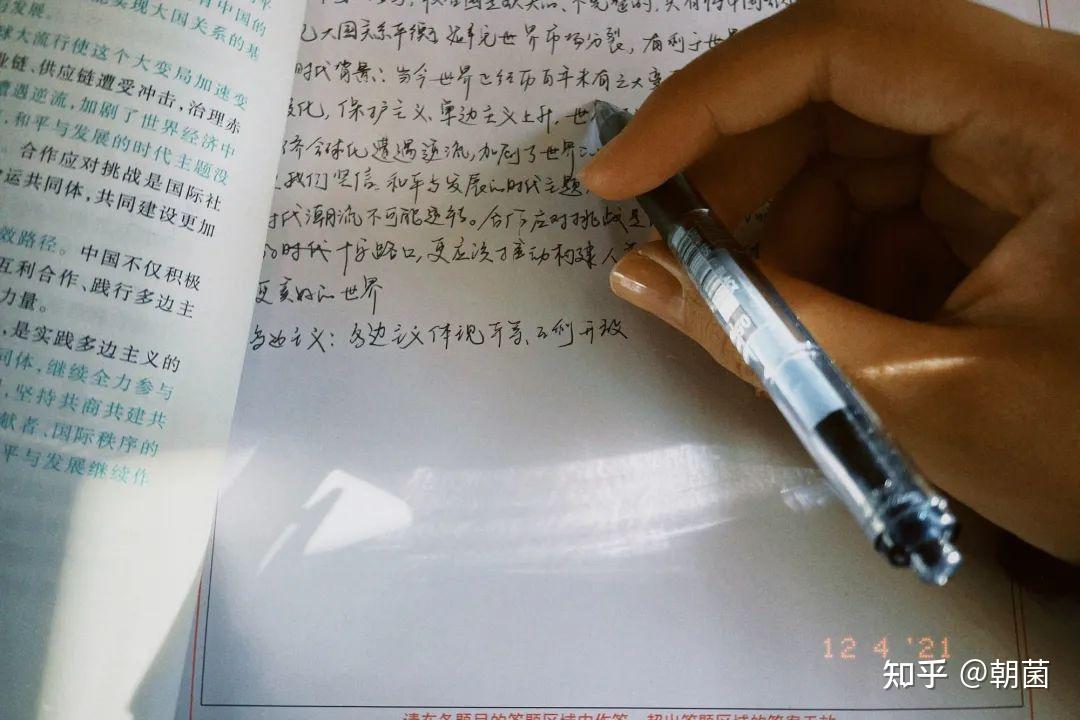 中国的
实现大国关系的基
与发展。
球大流行使这个大变局加速变
业链、供应链遭受冲击,治理赤
遭遇逆流,加剧了世界经济中
,和平与发展的时代主题没
。合作应对挑战是国际社
运共同体,共同建设更加
效路径。中国不仅积极
互利合作、践行多边主
力量。
,是实践多边主义的
同体,继续全力参与
,坚持共商共建共
献者、国际秩序的
平与发展继续作
大国关系平衡 世界市场分裂,有利于世
时代背景:当今世界正经历百年未有之大变
化,保护主义、单边主义上升,世
济全球化遭遇逆流,加剧了世界
我们坚信,和平与发展的时代主题
时代潮流不可能逆转。合作应对挑战是
时代十字路口,更应该推动构建人
更美好的世界
多边主义:多边主义体现 互利 开放
12 4 '21
知乎 @朝菌
请在各题目的答题区域内作答,超出答题区域的答案无效